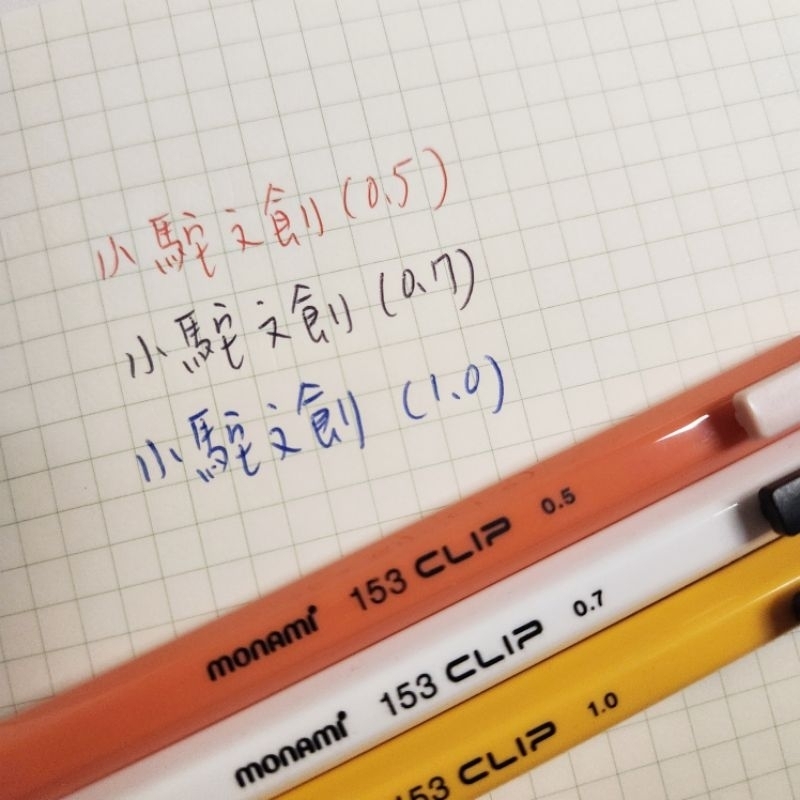 小駝文創(0.5)
小駝文創(0.7)
小駝文創(1.0)
monami 153 CLIP 0.5
monami 153 CLIP 0.7
153 CLIP 1.0